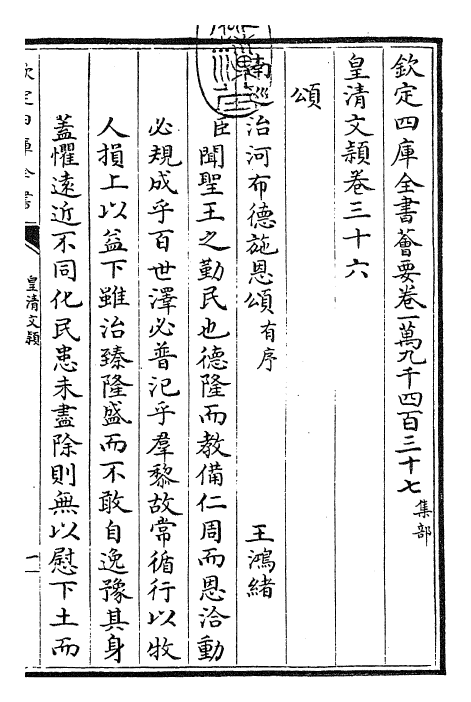 欽定四庫全書薈要卷一萬九千四百三十七 集部
皇清文穎卷三十六
頌
南巡治河布德施恩頌有序 王鴻緒
臣聞聖王之勤民也德隆而教備仁周而恩洽動
必規成乎百世澤必普汜乎羣黎故常循行以牧
人損上以益下雖治臻隆盛而不敢自逸豫其身
蓋懼遠近不同化民患未盡除則無以慰下土而
欽定四庫全書
皇清文穎
一